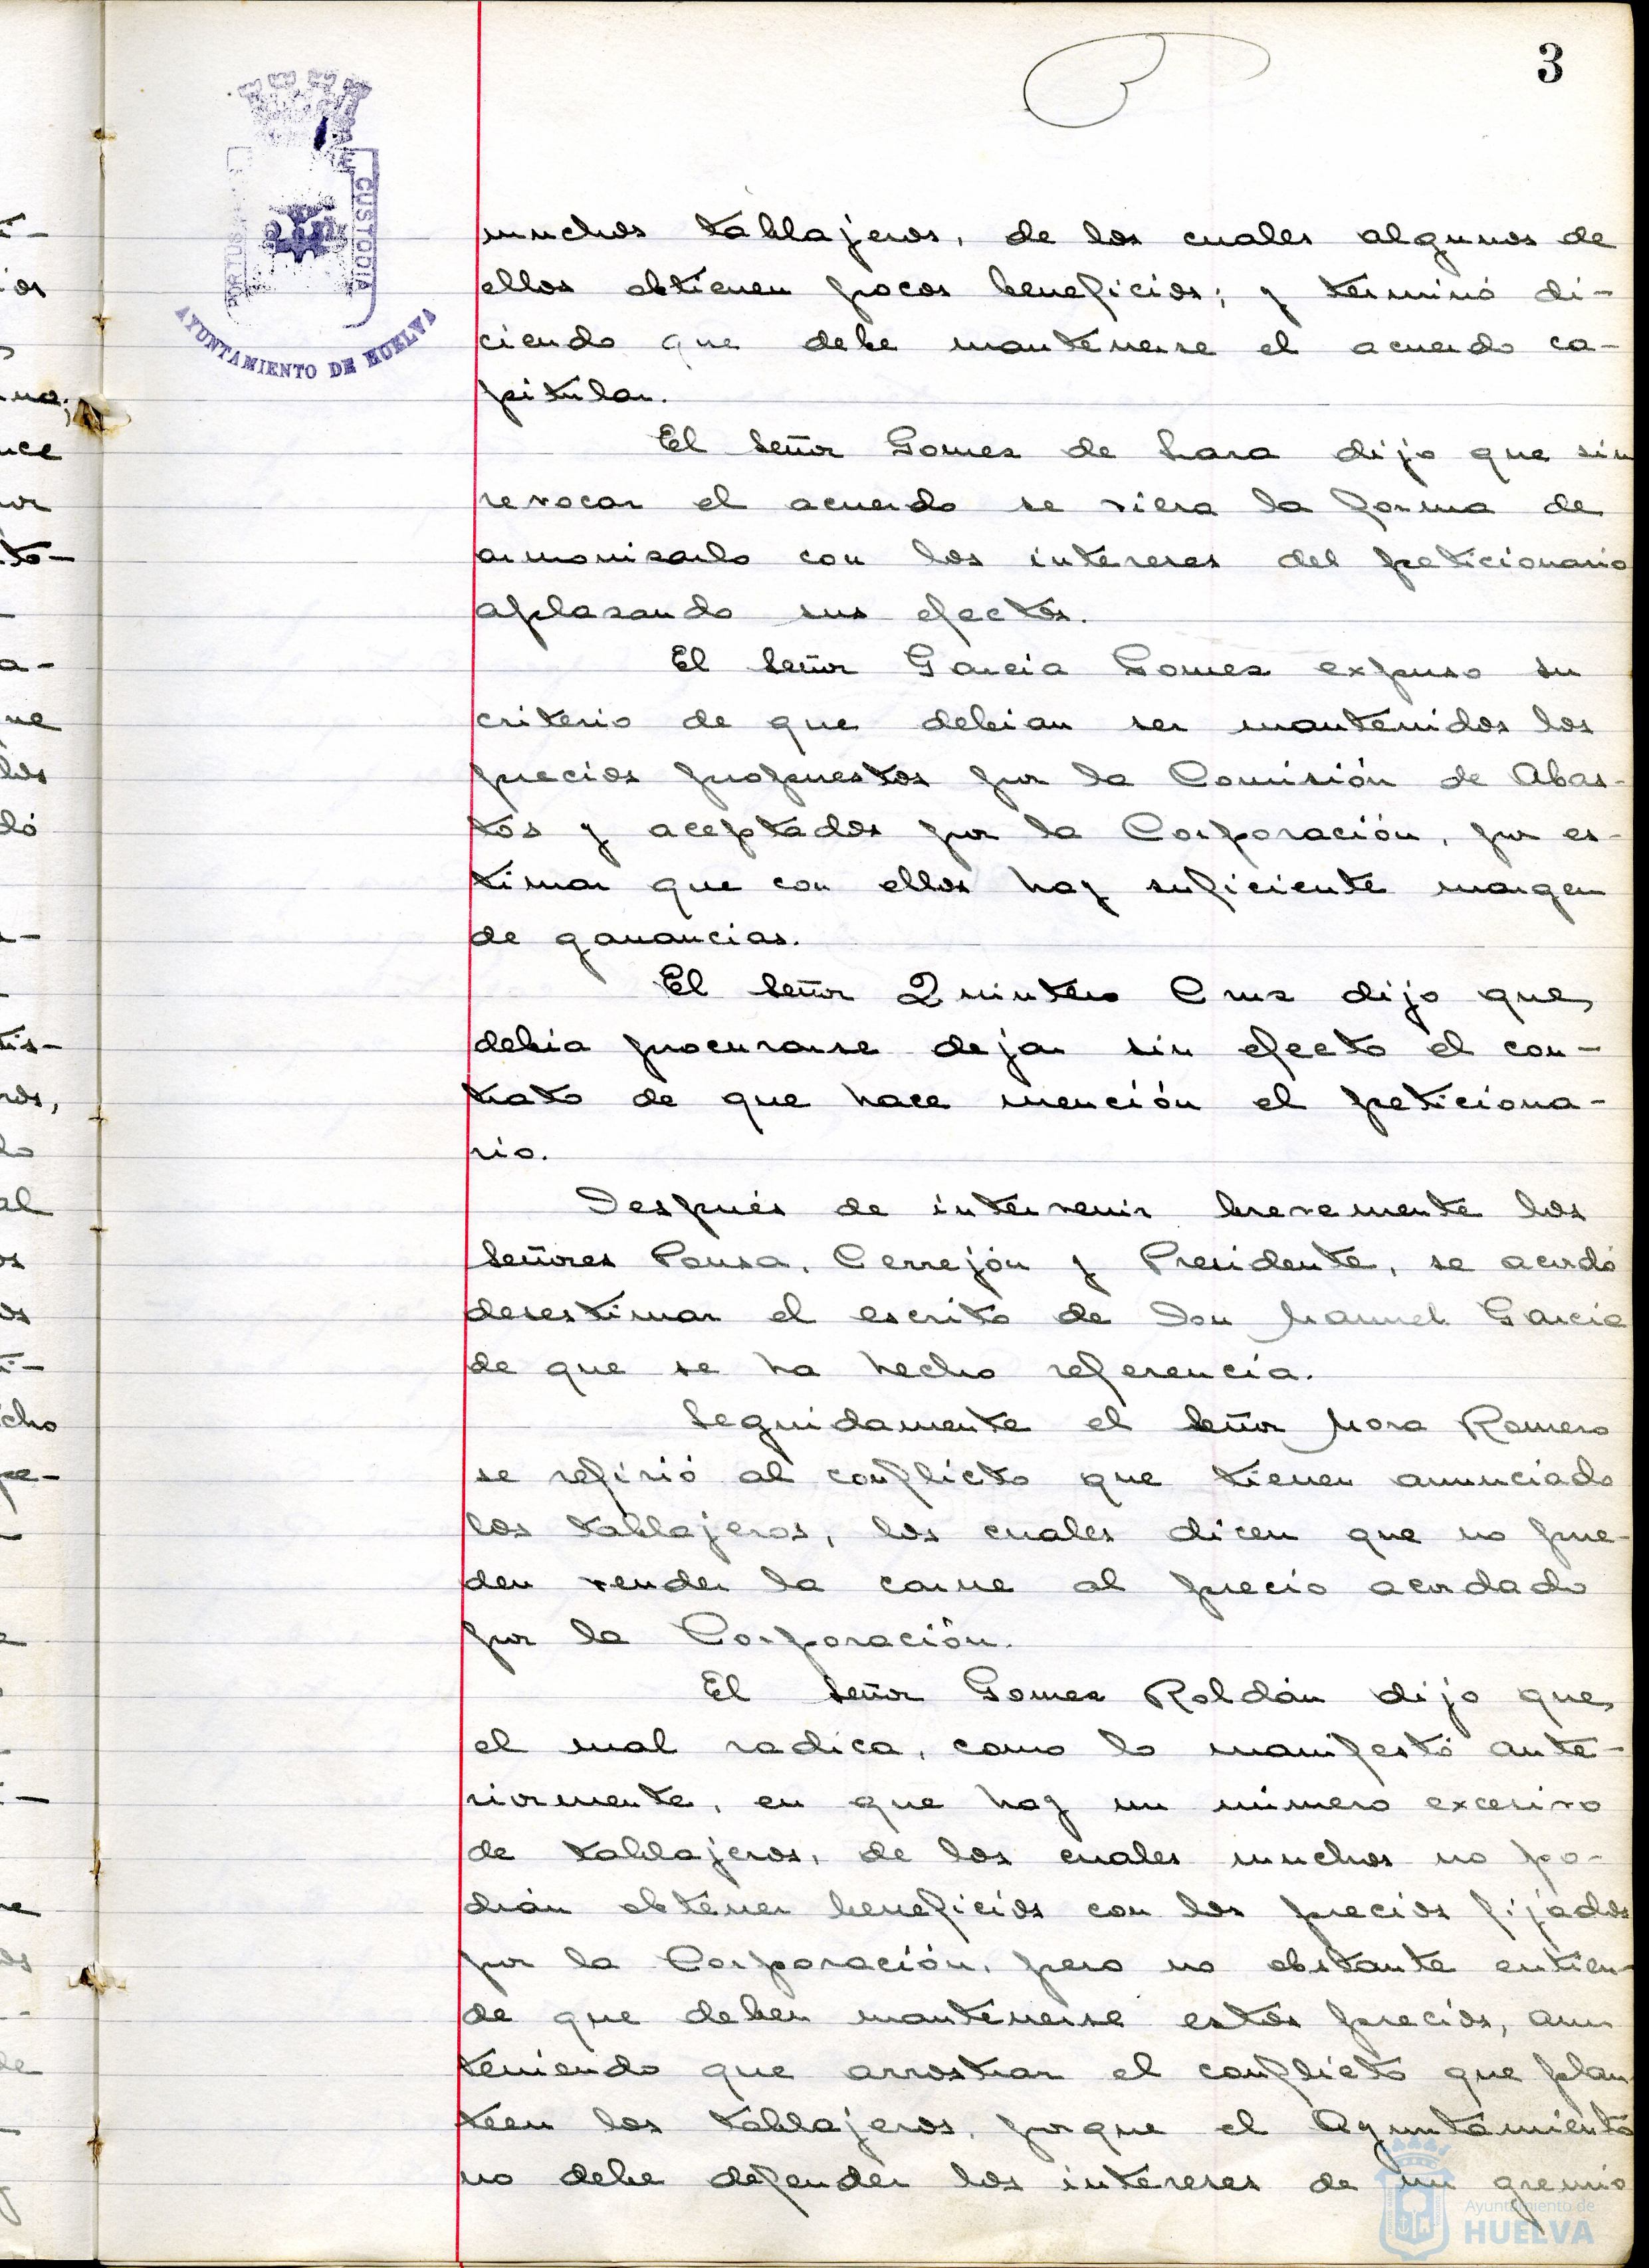 3
PORTUS
CUSTODIA
AYUNTAMIENTO DE HUELVA
muchos tablajeros, de los cuales algunos de
ellos obtienen pocos beneficios; y terminó di-
ciendo que debe mantenerse el acuerdo ca-
pitular.
El Señor Gomez de Lara dijo que sin
revocar el acuerdo se viera la forma de
armonizarlo con los intereses del peticionario
aplazando sus efectos.
El Señor García Gomez expuso su
criterio de que debian ser mantenidos los
precios propuestos por la Comisión de Abas-
tos y aceptados por la Corporación, por es-
timar que con ellos hay suficiente margen
de ganancias.
El Señor Quintero Cruz dijo que
debia procurarse dejar sin efecto el con-
trato de que hace mención el peticiona-
rio.
Después de intervenir brevemente los
Señores Pousa, Cerrejón y Presidente, se acordó
desestimar el escrito de Don Manuel García
de que se ha hecho referencia.
Seguidamente el Señor Mora Romero
se refirió al conflicto que tienen anunciado
los tablajeros, los cuales dicen que no pue-
den vender la carne al precio acordado
por la Corporación.
El Señor Gomez Roldán dijo que
el mal radica, como lo manifestó ante-
riormente, en que hay un número excesivo
de tablajeros, de los cuales muchos no po-
drán obtener beneficios con los precios fijados
por la Corporación, pero no obstante entien-
de que deben mantenerse estos precios, aun
teniendo que arrostrar el conflicto que plan-
teen los tablajeros, porque el Ayuntamiento
no debe defender los intereses de un gremio
Ayuntamiento de
HUELVA